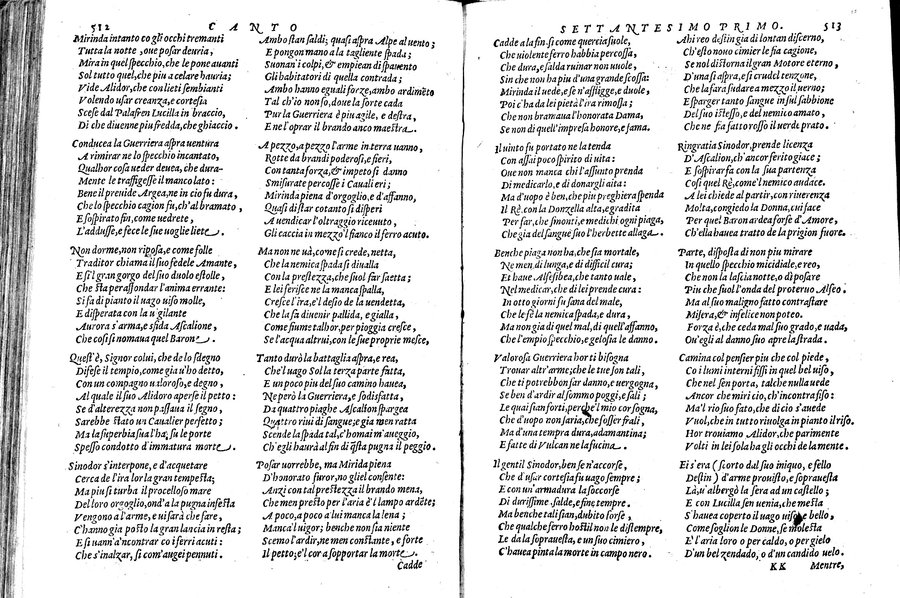 512 CANTO
Mirinda intanto co gli occhi tremanti
Tutta la notte, oue posar deuria,
Mira in quel specchio, che le pone auanti
Sol tutto quel, che piu a celare hauria;
Vide Alidor, che con lieti sembianti
Volendo usar creanza, e cortesia
Scese dal Palafren Lucilla in braccio,
Di che diuenne piu fredda, che ghiaccio.
Conducea la Guerriera aspra uentura
A rimirar ne lo specchio incantato,
Qualhor cosa ueder deuea, che dura-
Mente le traffigesse il manco lato:
Bene il preuide Argea, ne in cio fu dura,
Che lo specchio cagion fu, ch'al bramato,
E sospirato fin, come uedrete,
L'addusse, e fece le sue uoglie liete.
Non dorme, non riposa, e come folle
Traditor chiama il suo fedele Amante,
E si'l gran gorgo del suo duolo estolle,
Che sta per affondar l'anima errante.
Si fa di pianto il uago uiso molle,
E disperata con la uigilante
Aurora s'arma, e sfida Ascalione,
Che cosi si nomaua quel Barone.
Quest'è, Signor colui, che de lo sdegno
Difese il tempio, come gia u'ho detto,
Con un compagno ualoroso, e degno,
Al quale il suo Alidoro aperse il petto:
Se d'alterezza non passaua il segno,
Sarebbe stato un Caualier perfetto;
Ma la superbia sua l'ha su le porte
Spesso condotto d'immatura morte.
Sinodor s'interpone, e d'acquetare
Cerca de l'ira lor la gran tempesta;
Ma piu si turba il procelloso mare
Del loro orgoglio, ond'a la pugna infesta
Vengono a l'arme, e ui sarà che fare,
C'hanno gia posto la gran lancia in resta;
E si uann'a'ncontrar co i ferri acuti:
Che s'inalzar, si com'augei pennuti.
Ambo stan saldi; quasi aspra Alpe al uento;
E pongon mano a la tagliente spada;
Suonan'i colpi, & empiean di spauento
Gli habitatori di quella contrada;
Ambo hanno eguali forze, ambo ardimēto
Tal ch'io non so, doue la sorte cada
Pur la Guerriera è piu agile, e destra,
E ne l'oprar il brando anco maestra.
A pezzo, a pezzo l'arme in terra uanno,
Rotte da brandi poderosi, e fieri,
Con tanta forza, & impeto si danno
Smisurate percosse i Caualieri;
Mirinda piena d'orgoglio, e d'affanno,
Quasi di star cotanto si disperi
A uendicar l'oltraggio riceuuto,
Gli caccia in mezzo'l fianco il ferro acuto.
Ma non ne uà, come si crede, netta,
Che la nemica spada si diualla
Con la prestezza, che suol far saetta;
E lei ferisce ne la manca spalla,
Cresce l'ira, e'l desio de la uendetta,
Che la fa diuenir pallida, e gialla,
Come fiume talhor, per pioggia cresce,
Se l'acqua altrui, con le sue proprie mesce,
Tanto durò la battaglia aspra, e rea,
Che'l uago Sol la terza parte fatta,
E un poco piu del suo camino hauea,
Ne però la Guerriera, e sodisfatta,
Da quattro piaghe Ascalion spargea
Quattro riui di sangue, e gia mratta
Scende la spada tal, e'homai m'aueggio,
Ch'egli haurà al fin di q̃sta pugna il peggio.
Posar uorrebbe, ma Mirida piena
D'honorato furor, no gliel consente:
Anzi con tal prestezza il brando mena,
Che men presto per l'aria è'l lampo ardēte;
A poco, a poco a lui manca la lena;
Manca'l uigor; benche non sia niente
Scemo l'ardir, ne men costante, e forte
Il petto; e'l cor a sopportar la morte.
Cadde
SETTANTESIMO PRIMO. 513
Cadde a la fin, si come quercia suole,
Che uiolente ferro habbia percossa,
Che dura, e salda ruinar non uuole,
Sin che non ha piu d'una grande scossa:
Mirinda il uede, e se n'affligge, e duole,
Poi c'ha da lei pietà l'ira rimossa;
Che non bramaua l'honorata Dama,
Se non di quell'impresa honore, e fama.
Il uinto su portato ne la tenda
Con assai poco spirito di uita:
Oue non manca chi l'assunto prenda
Di medicarlo, e di donargli aita:
Ma d'uopo è ben, che piu preghiera spenda
Il Rè, con la Donzella alta, e gradita
Per far, che smonti, e medichi ogni piaga,
Che gia del sangue suo l'herbette allaga.
Benche piaga non ha, che sia mortale,
Ne men di lunga, e di difficil cura;
Et haue Alfesibea, che tanto uale,
Nel medicar, che di lei prende cura:
In otto giorni su sana del male,
Che le fè la nemica spada, e dura,
Ma non gia di quel mal, di quell'affanno,
Che l'empio specchio, e gelosia le danno.
Valorosa Guerriera hor ti bisogna
Trouar altr'arme; che le tue son tali,
Che ti potrebbon far danno, e uergogna,
Se ben d'ardir al sommo poggi, e sali;
Le quai sian forti, perche'l mio cor sogna,
Che d'uopo non saria, che fosser frali,
Ma d'una tempra dura, adamantina;
E fatte di Vulcan ne la fucina.
Il gentil Sinodor, ben se n'accorse,
Che d'usar cortesia fu uago sempre;
E con un'armadura la soccorse
Di durissime, salde, e fine tempre.
Ma benche tal sian, dubito forse,
Che qualche ferro hostil non le distempre,
Le da la soprauesta, e un suo cimiero,
C'hauea pinta la morte in campo nero.
Ahi reo destin gia di lontan discerno,
Ch'esto nouo cimier le fia cagione,
Se nol distorna il gran Motore eterno,
D'una si aspra, e si crudel tenzone,
Che la farà sudar a mezzo il uerno;
E sparger tanto sangue in sul sabbione
Del suo istesso, e del nemico amato,
Che ne fia fatto rosso il uerde prato.
Ringratia Sinodor, prende licenza
D'Ascalion, ch'ancor ferito giace;
E sospirar fa con la sua partenza
Cosi quel Rè, come'l nemico audace.
A lei chiede al partir, con riuerenza
Molta, congiedo la Donna, cui face
Per quel Baron ardea forse d'Amore,
Ch'ella hauea tratto de la prigion fuore.
Parte, disposta di non piu mirare
In quello specchio micidiale, e reo,
Che non la lascia notte, o dì posare
Piu che suol l'onda del proteruo Alfeo.
Ma al suo maligno fato contrastare
Misera, & infelice non poteo.
Forza è, che ceda mal suo grado, e uada,
Ou'egli al danno suo apre la strada.
Camina col pensier piu che col piede,
Co i lumi interni fissi in quel bel uiso,
Che nel sen porta, talche nulla uede
Ancor che miri ciò, ch'incontra fiso:
Ma'l rio suo fato, che di cio s'auede
Vuol, che in tutto riuolga in pianto il riso.
Hor trouiamo Alidor, che parimente
Volti in lei sola ha gli occhi de la mente.
Ei s'era (scorto dal suo iniquo, e fello
Destin) d'arme prouisto, e soprauesta
Là, u' albergò la sera ad un castello;
E con Lucilla sen uenia, che mesta
S'hauea coperto il uago uiso, e bello,
Come soglion le Donne, se molesta
E l'aria loro o per caldo, o per gielo
D'un bel zendado, o d'un candido uelo.
KK Mentre,